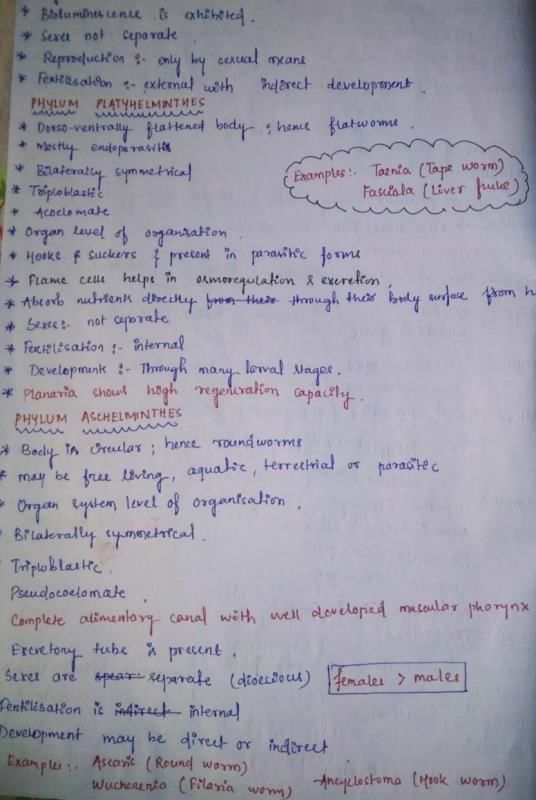 * Bioluminescence is exhibited.
* Sexes not separate.
* Reproduction :- only by sexual means
* Fertilisation :- external with indirect development.
PHYLUM PLATYHELMINTHES
* Dorso-ventrally flattened body ; hence flatworms.
* mostly endoparasitis
* Bilaterally symmetrical
* Triploblastic
* Acoelomate
Examples:- Taenia (Tape worm)
Fasciala (Liver fluke)
* Organ level of organisation.
* Hooks & suckers & present in parasitic forms
* Flame cells helps in osmoregulation & excretion.
* Absorb nutrients directly from their through their body surface from h
* Sexes:- not separate.
* Fertilisation :- internal
* Development :- Through many larval stages.
* Planaria shows high regeneration capacity.
PHYLUM ASCHELMINTHES
* Body is circular ; hence roundworms
* may be free living, aquatic, terrestrial or parasitic
* Organ system level of organisation.
Bilaterally symmetrical.
Triploblastic.
Pseudocoelomate.
Complete alimentary canal with well developed muscular pharynx
Excretory tube is present.
Sexes are spear separate (dioecious) females > males
Fertilisation is indirect internal
Development may be direct or indirect
Examples:. Ascaris (Round worm)
Wuchereria (Filaria worm) Ancyclostoma (Hook worm)